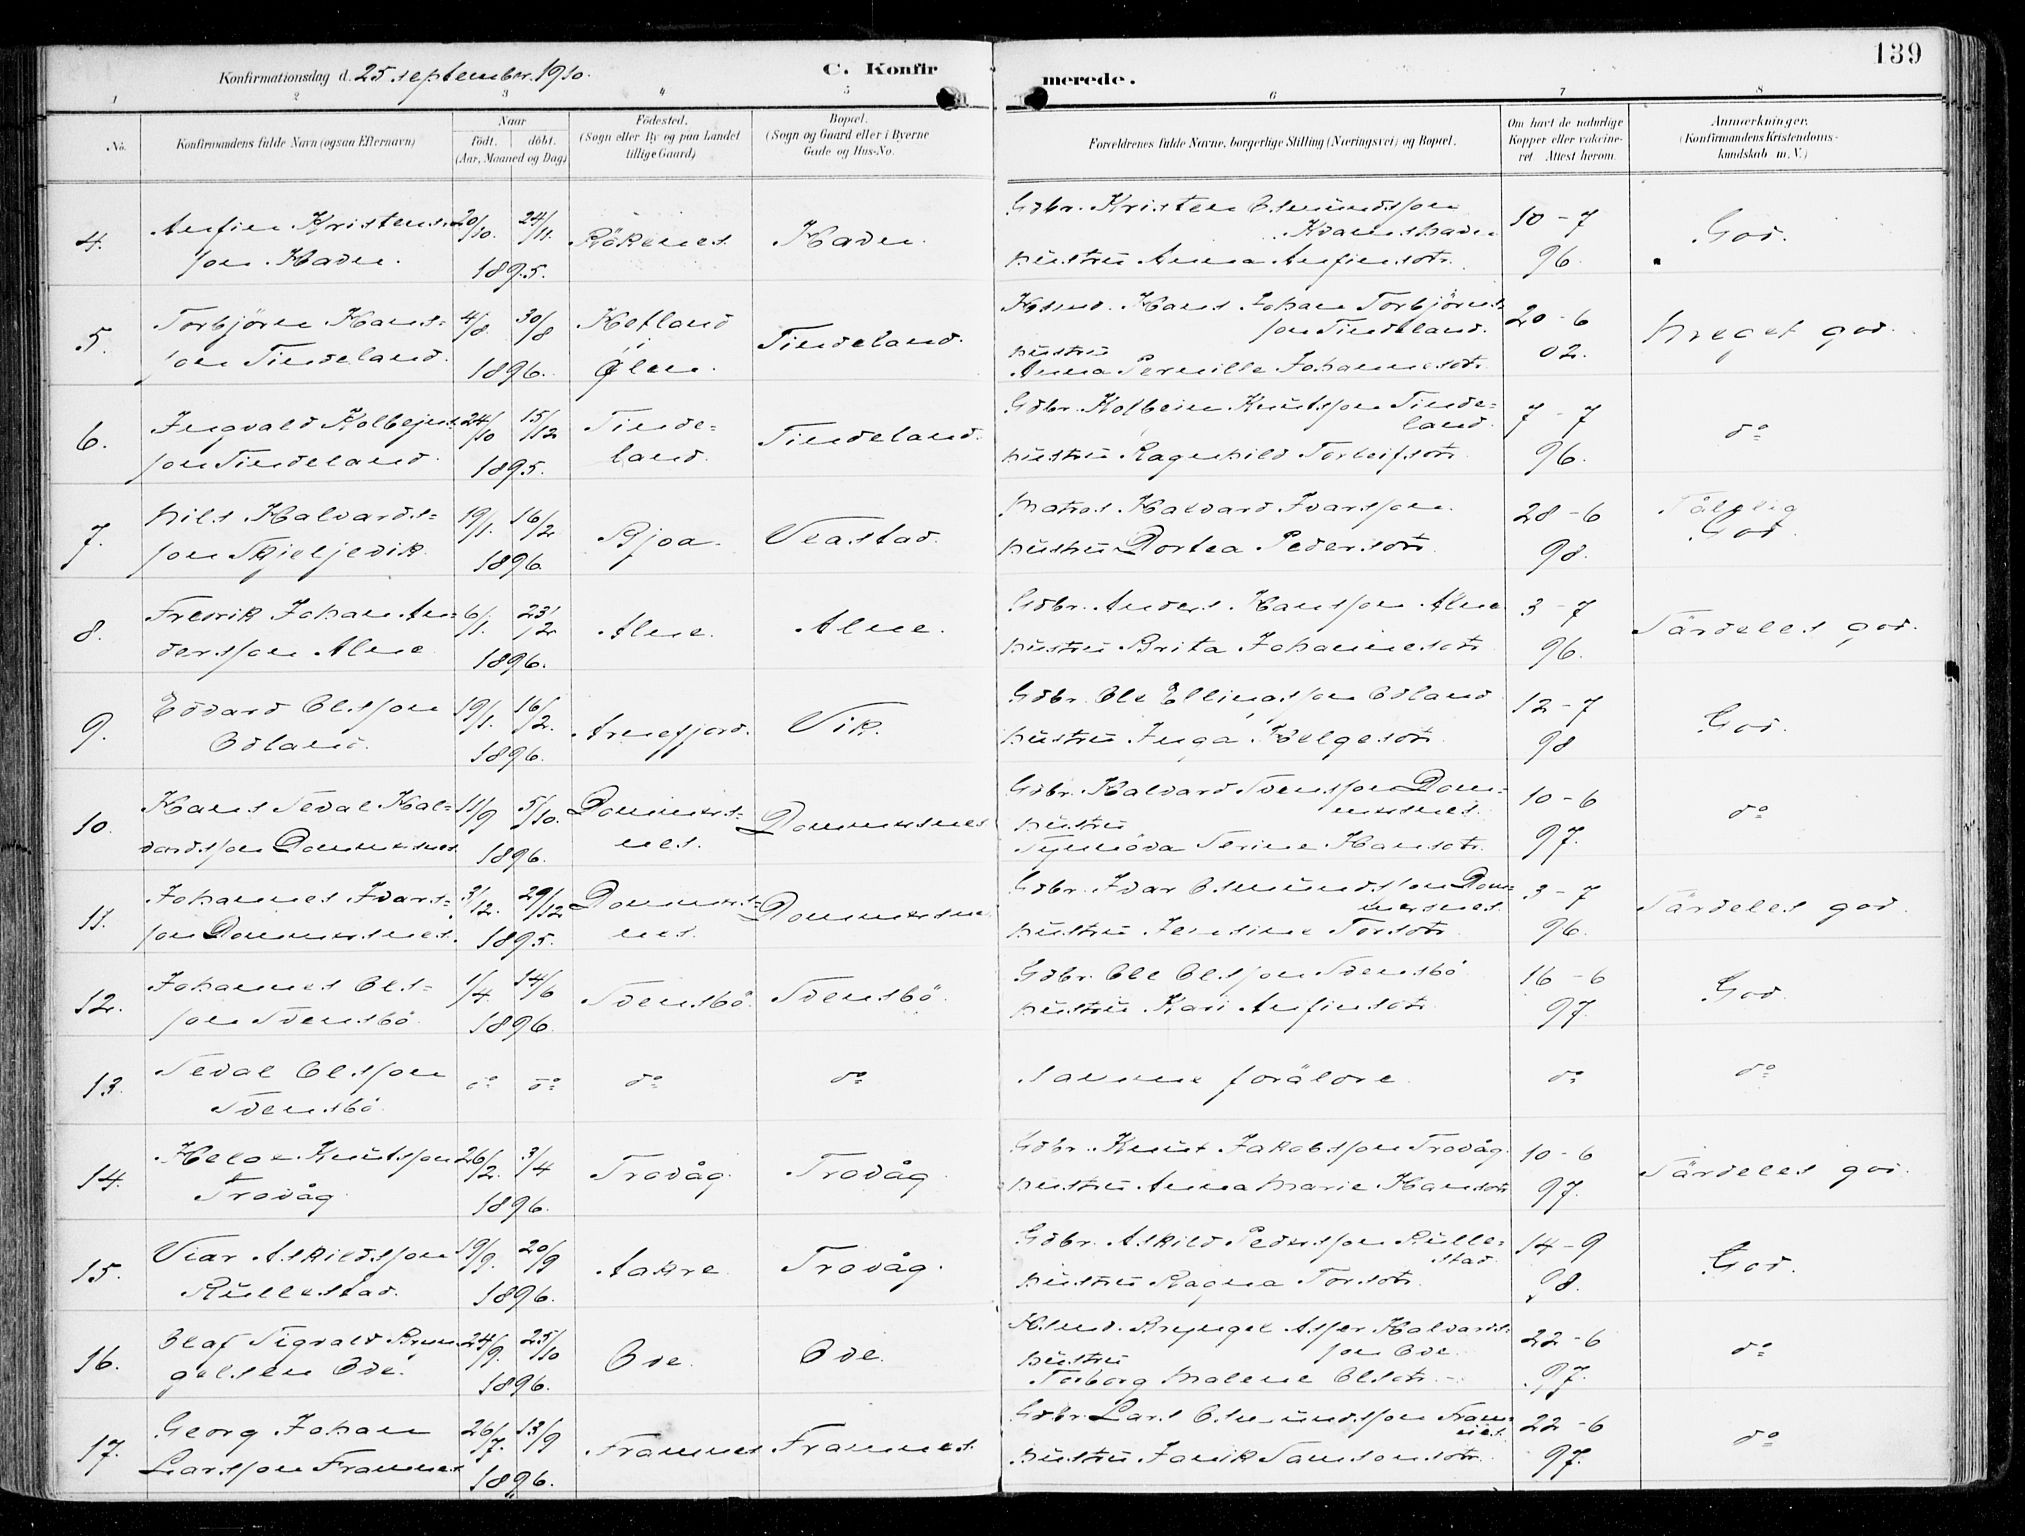 139
Konfirmationsdag d. 25 september 1910.
C. Konfirmerede.
1 2 3 4 5 6 7 8
No.
Konfirmandens fulde Navn (ogsaa Efternavn)
Naar
født. døbt.
(Aar, Maaned og Dag)
Fødested.
(Sogn eller By og paa Landet
tillige Gaard)
Bopæl.
(Sogn og Gaard eller i Byerne
Gade og Hus-No.
Forældrenes fulde Navne, borgerlige Stilling (Næringsvei) og Bopæl.
Om havt de naturlige
Kopper eller vakcine-
ret Attest herom.
Anmærkninger.
(Konfirmandens Kristendoms-
kundskab m. V.)
4. Anfin Kristens-
son Haden.
20/10. 24/11.
1895.
Rökenes
Haden.
Gdbr. Kristen Osmundsson
Kvamshaden
hustru Anna Anfinsdtr.
10 - 7
96.
God.
5. Torbjörn Hans-
son Tindeland.
4/8. 30/8
1896.
Hetland
Ølen.
Tindeland.
Hsmd. Hans Johan Torbjörns-
son Tindeland.
hustru
Anna Pernille Johannesdtr.
20 - 6
02.
Meget god.
6. Ingvald Kolbejns
son Tindeland.
24/10 15/12
1895.
Tinde-
land.
Tindeland.
Gdbr. Kolbein Knutsson Tinde-
land.
hustru Ragnhild Torleifsdtr.
7 - 7
96.
do
7. Nils Halvards-
son Skjeljevik.
19/1. 16/2
1896.
Bjoa.
Veastad.
Matros Halvard Ivarsson
hustru Dortea Pedersdtr.
28 - 6
98.
Tålelig
God.
8. Fredrik Johan An-
dersson Alne
6/1. 23/2
1896.
Alne.
Alne.
Gdbr. Anders Hansson Alne
hustru Brita Johannesdtr.
3 - 7
96.
Særdeles god.
9. Edvard Olsson
Odland.
19/1. 16/2.
1896.
Arnefjord.
Vik.
Gdbr. Ole Ellingsson Odland
hustru Inga Helgesdtr.
12 - 7
98
God.
10. Hans Sedal Hal-
vardsson Dommersnes.
11/9 5/10.
1896.
Dommers-
nes.
Dommersnes
Gdbr. Halvard Svensson Dom-
mersnes.
hustru
Synnöva Serine Hansdtr.
10 - 6
97.
do
11. Johannes Ivars-
son Dommersnes.
3/12. 29/12
1895.
Dommers-
nes.
Dommersnes
Gdbr. Ivar Osmundsson Dom-
mersnes.
hustru Jensine Torsdtr.
3 - 7
96.
Særdeles god.
12. Johannes Ols-
son Svensbö.
1/4. 14/6
1896.
Svensbö.
Svensbö.
Gdbr. Ole Olsson Svensbö
hustru Kari Anfinsdtr.
16 - 6
97.
God.
13. Sedal Olsson
Svensbö.
do do do do
Samme forældre.
do do
14. Helge Knutsson
Trovåg.
26/2. 3/4
1896.
Trovåg.
Trovåg.
Gdbr. Knut Jakobsson Trovåg
hustru Anna Marie Hansdtr
10 - 6
97.
Særdeles god.
15. Viar Askildsson
Rullestad.
19/9. 20/9
1896.
Aakre.
Trovåg.
Gdbr. Askild Pedersson Rulle-
stad.
hustru Ragna Torsdtr.
14 - 9
98.
God.
16. Olaf Sigvald Bryn
gelsen Ode.
24/9. 25/10
1896.
Ode.
Ode.
Hsmd. Bryngel Asser Halvards-
son Ode.
hustru
Torborg Malene Olsdtr.
22 - 6
97.
do
17. Georg Johan
Larsson Framnes
26/7. 13/9
1896.
Framnes
Framnes.
Gdbr. Lars Osmundsson Fram-
nes.
hustru Janik Samsonsdtr.
22 - 6
97.
do